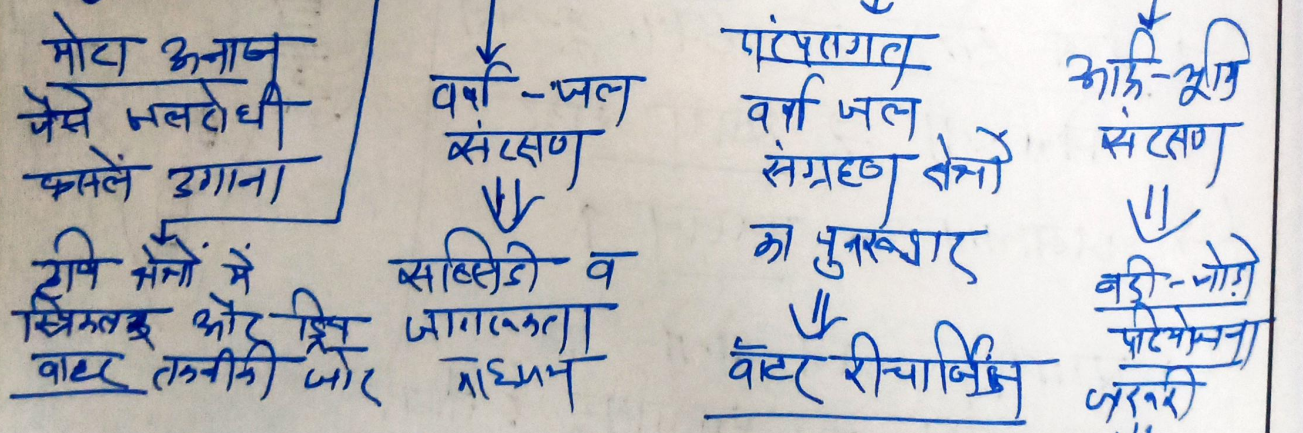 मोटा अनाज
जैसे जलरोधी
फसलें उगाना
कृषि क्षेत्रों में
स्प्रिंकलर और ड्रिप
वाटर तकनीकी जोर
वर्षा-जल
संरक्षण
सब्सिडी व
जागरूकता
माध्यम
परंपरागत
वर्षा जल
संग्रहण क्षेत्रों
का पुनरुद्धार
वॉटर रीचार्जिंग
आर्द्र-भूमि
संरक्षण
नदी-जोड़ो
परियोजना
जरूरी